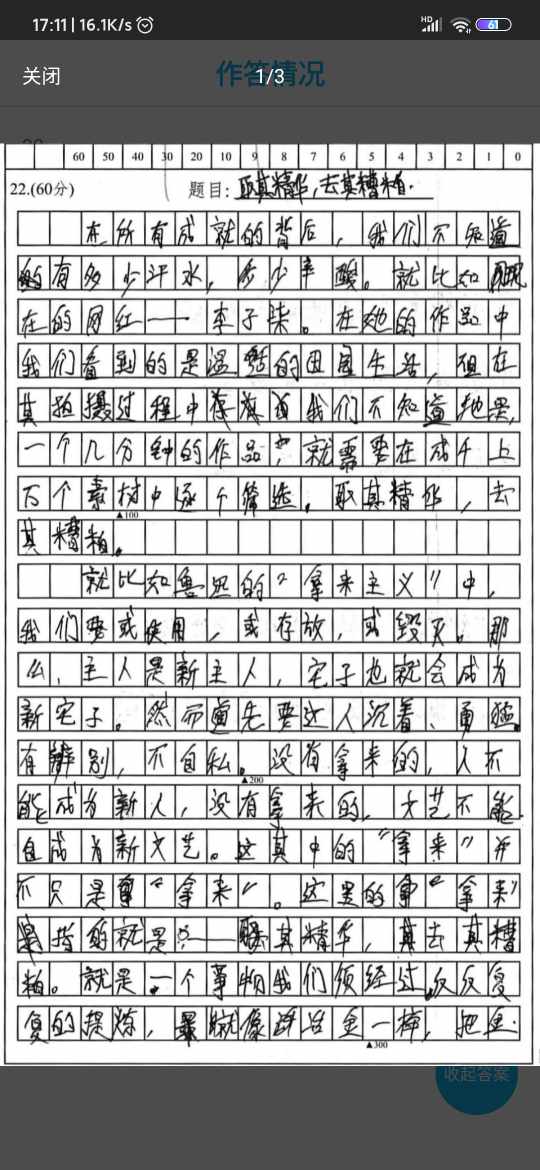 17:11 | 16.1K/s
HD 61
关闭 作答情况 1/3
60 50 40 30 20 10 9 8 7 6 5 4 3 2 1 0
22.(60分) 题目: 取其精华,去其糟粕.
在所有成就的背后,我们不知道
有多少汗水,多少辛酸。就比如现
在的网红——李子柒。在她的作品中
我们看到的是温馨的田园生活,但在
其拍摄过程中 我们不知道
一个几分钟的作品,就需要在成千上
万个素材中逐个筛选。取其精华,去
▲100
其糟粕。
就比如鲁迅的“拿来主义”中,
我们要或使用,或存放,或毁灭。那
么,主人是新主人,宅子也就会成为
新宅子。然而首先要这人沉着、勇猛。
有辨别,不自私。没有拿来的,人不
▲200
能成为新人,没有拿来的,文艺不能
自成为新文艺。这其中的“拿来”并
不只是“拿来”。这里的“拿来”
是指的就是:——取其精华,去其糟
粕。就是一个事物我们须经过反反复
复的提炼,就像 金一样,把金
▲300
收起答案